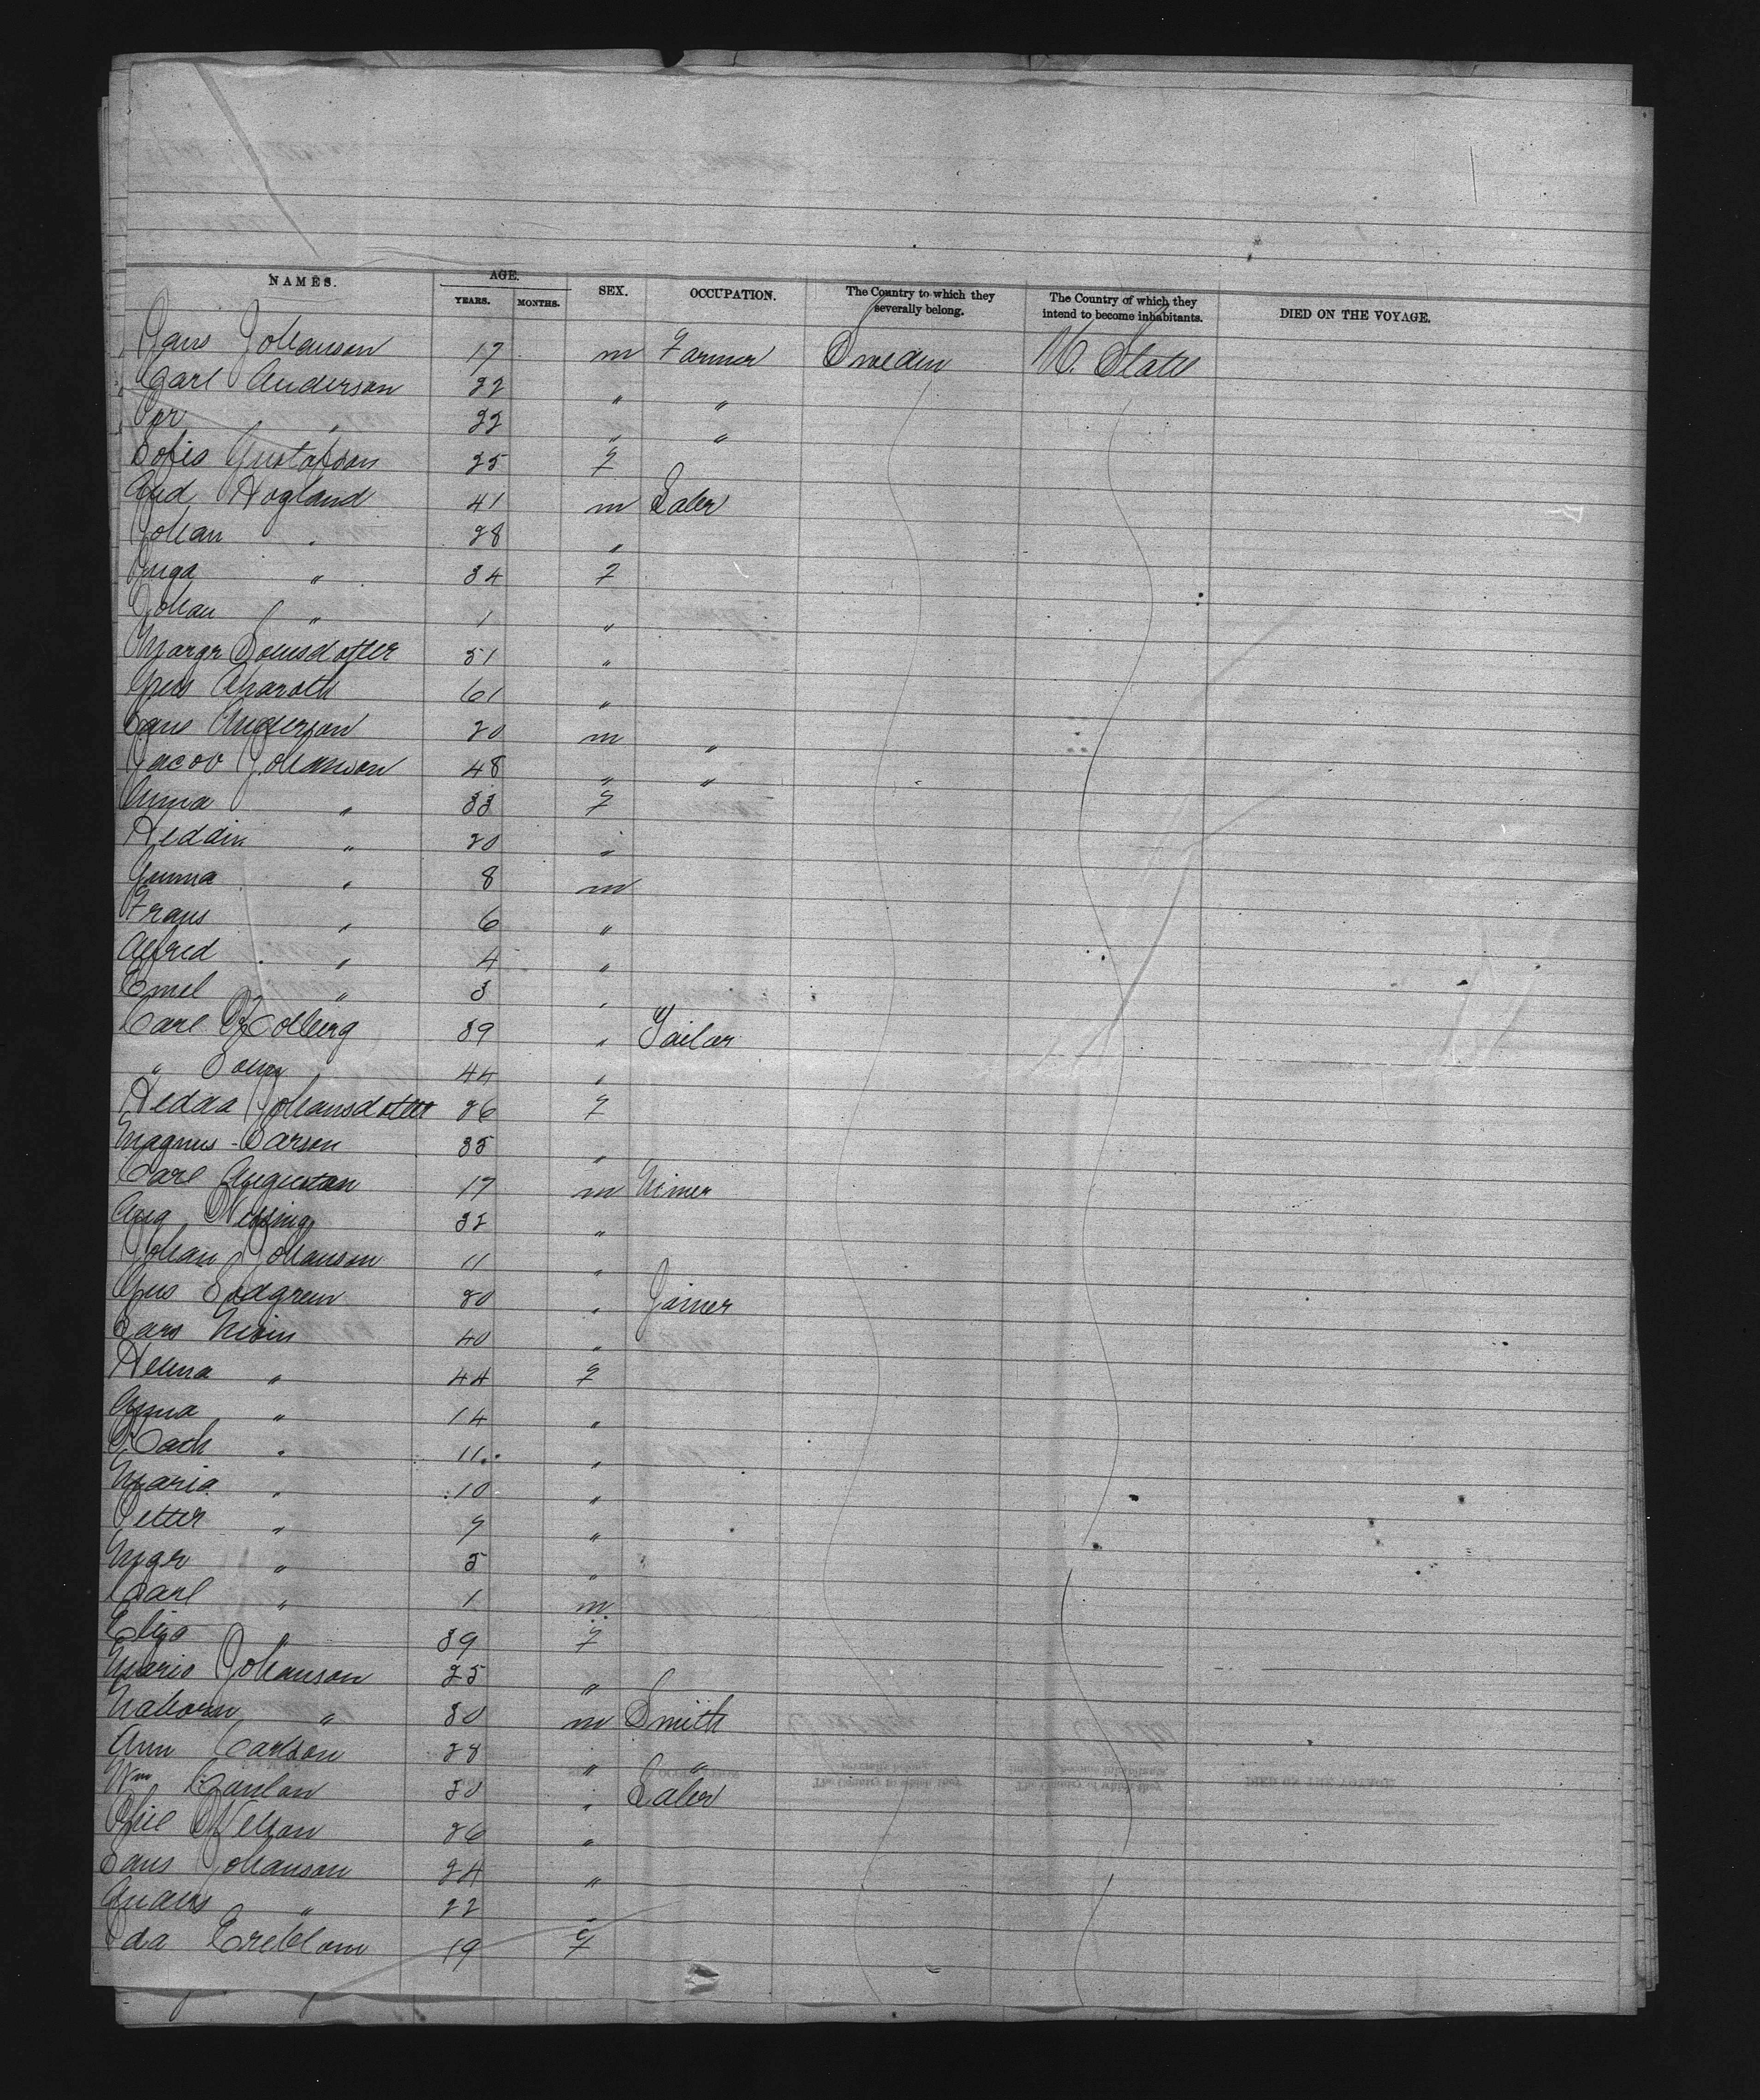 NAMES. AGE. SEX. OCCUPATION. The Country to which they severally belong. The Country of which they intend to become inhabitants. DIED ON THE VOYAGE.
YEARS. MONTHS.
Hans Johanson 17 m Farmer Sweden U. States
Carl Anderson 22 " "
Per " 22 " "
Sofia Gustafson 25 F
And Hogland 41 m Labr
Johan " 28 "
Inga " 34 F
Johan " 1 "
Margr 51 "
Gus 61 "
Lars Anderson 20 m "
Jacob Johanson 48 " "
Anna " 33 F
Heddin " 20 "
Gunna " 8 m
Frans " 6 "
Alfred " 4 "
Emel " 3 "
Carl Kolberg 39 " Tailor
" 44 "
Hedda Johansdotter 26 F
Magnus Larson 35 "
Carl Augustan 17 m Miner
Aug 32 "
Johan Johanson 11 "
Gus Sodgren 20 " Joiner
Lars 40 "
Helena " 44 F
Anna " 14 "
Cath " 11 "
Maria " 10 "
Petter " 9 "
Mgr " 5 "
Carl " 1 m
Eliza " 39 F
Maria Johanson 25 "
" 30 m Smith
Ann Carlson 28 " "
Wm 30 " Labr
Nelson 26 "
Lars Johanson 24 "
Anders " 22 "
Ida 19 F